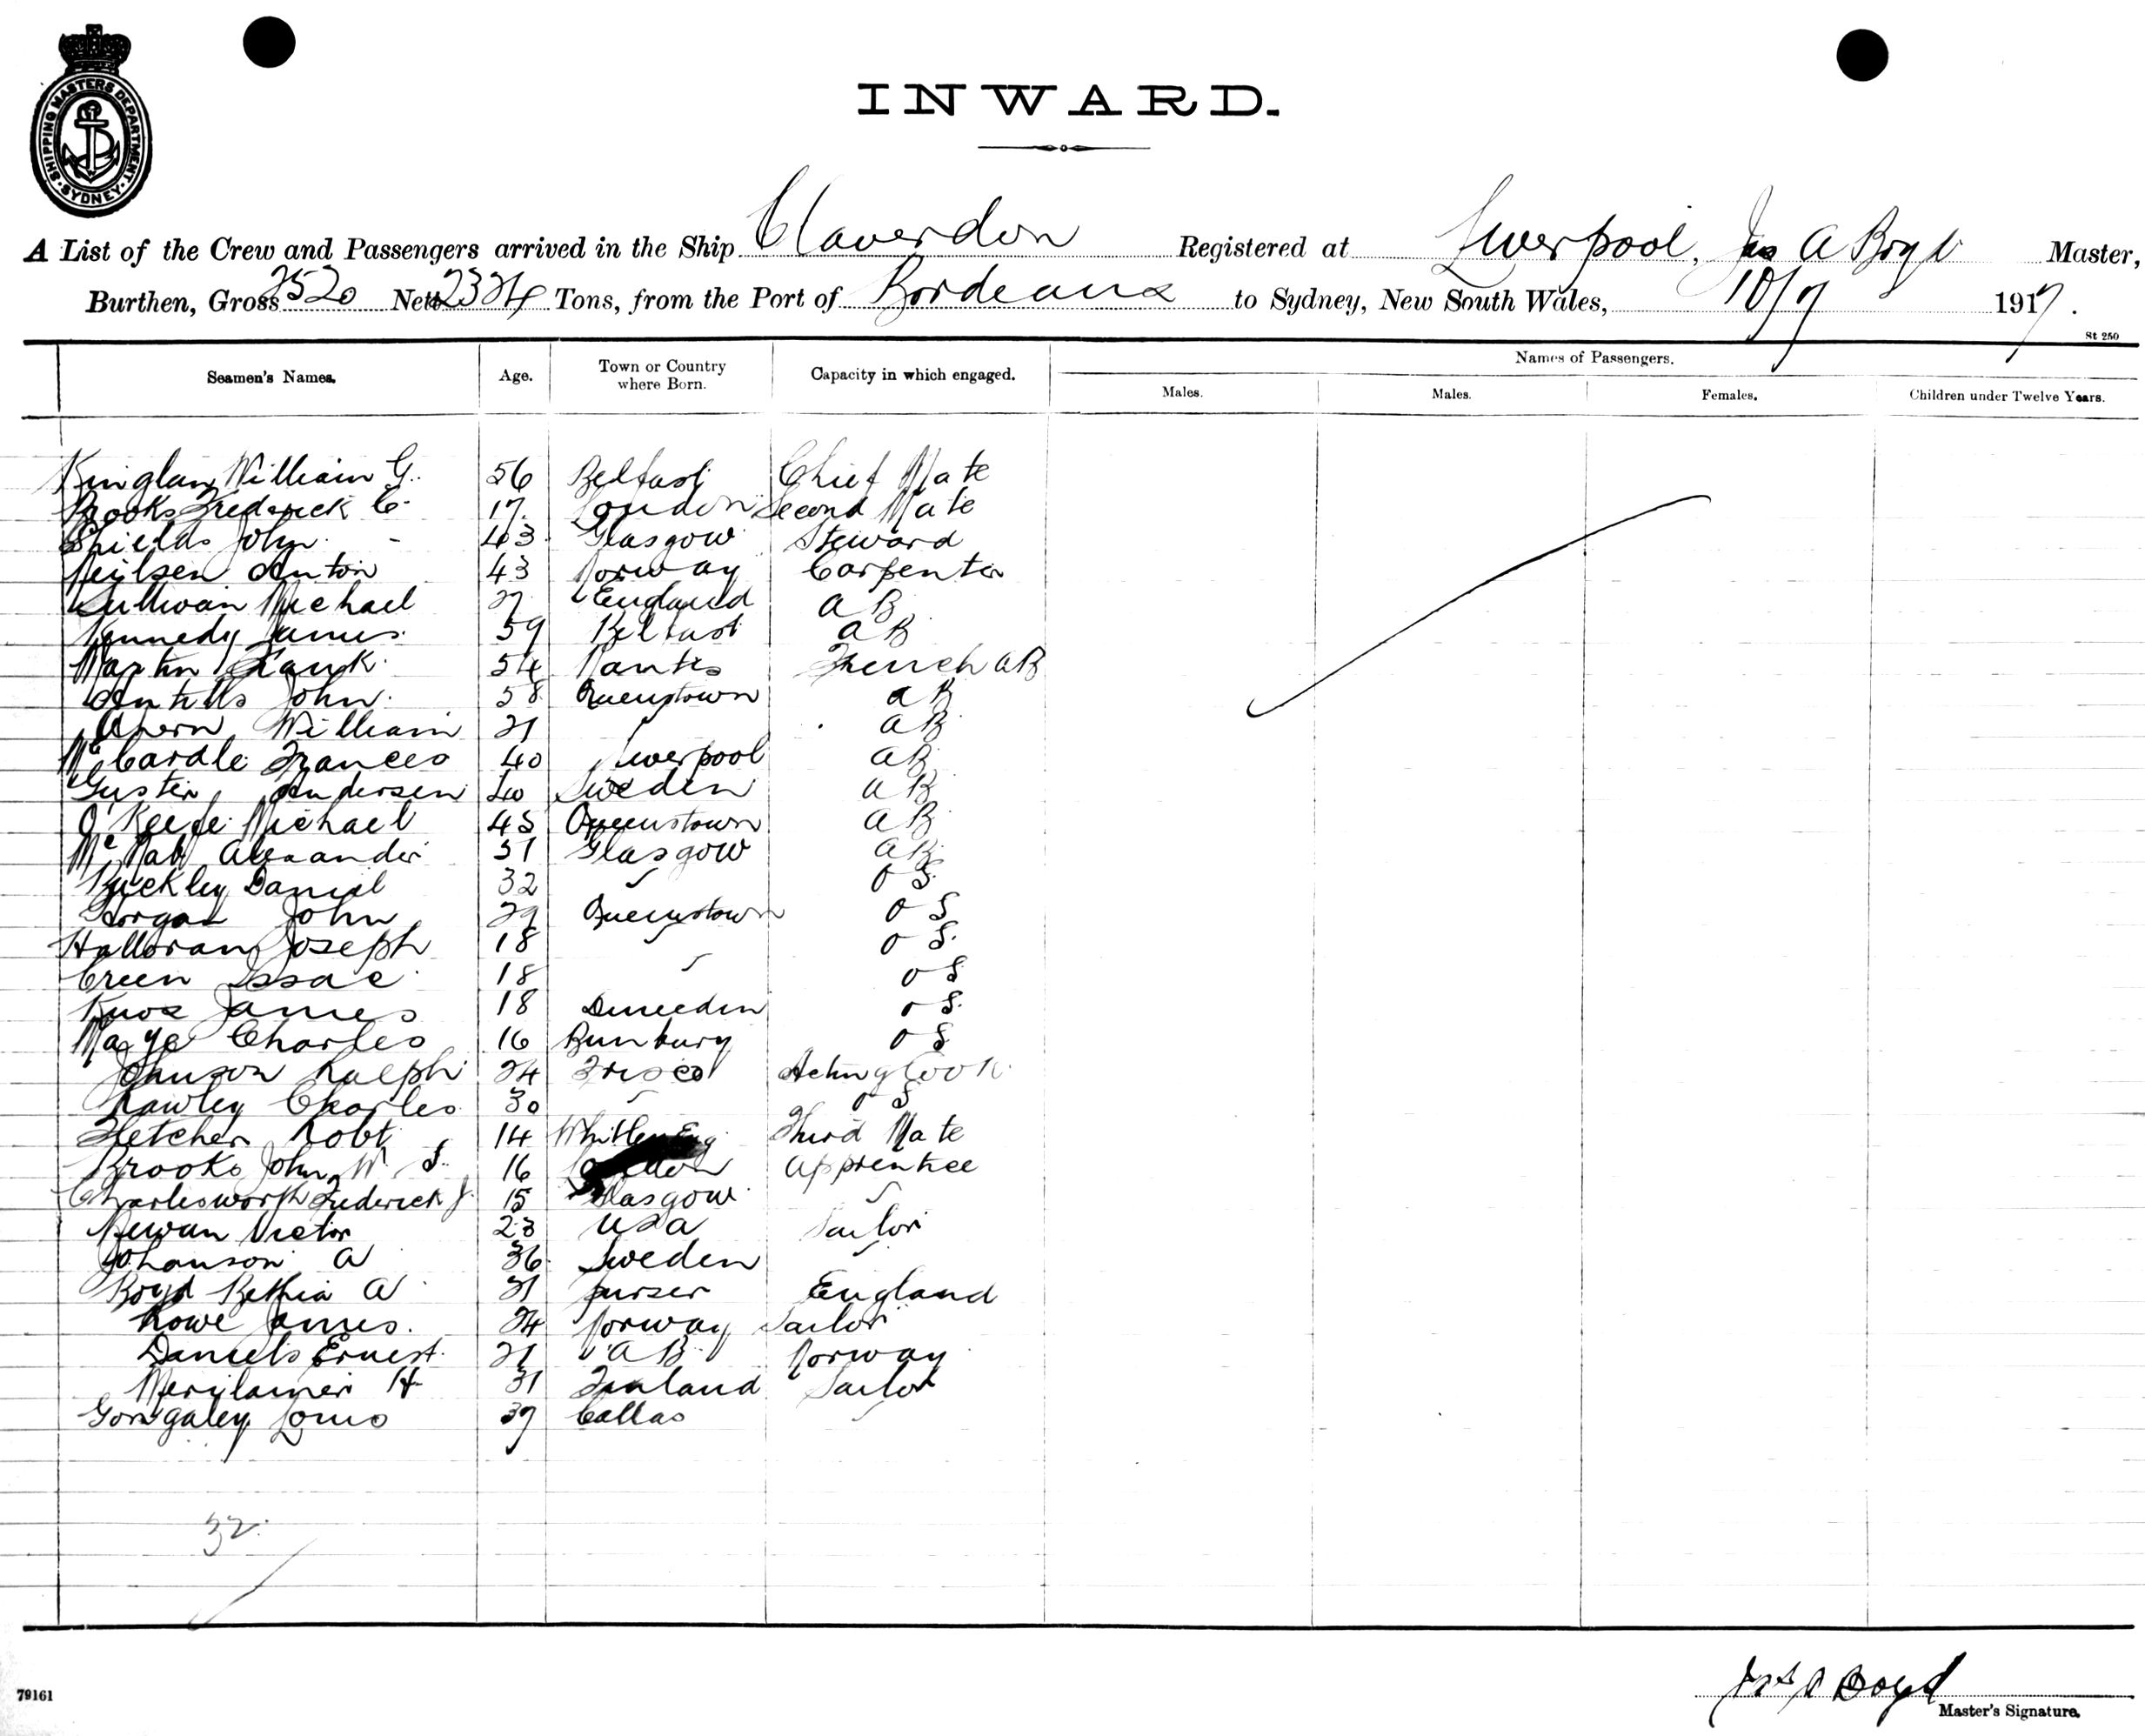 SHIPPING MASTERS DEPARTMENT
SYDNEY
INWARD.
A List of the Crew and Passengers arrived in the Ship Claverdon Registered at Liverpool, Jas A Boyd Master,
Burthen, Gross 2520 Nett 2334 Tons, from the Port of Bordeaux to Sydney, New South Wales, 10/7 1917.
St 250
Seamen's Names. Age. Town or Country where Born. Capacity in which engaged. Names of Passengers.
Males. Males. Females. Children under Twelve Years.
William G. 56 Belfast Chief Mate
Brooks Frederick C 17 London Second Mate
Shields John 43 Glasgow Steward
Neilsen Anton 43 Norway Carpenter
Sullivan Michael 27 England AB
Kennedy James 59 Belfast AB
Martin Frank 54 Nantes French AB
John 58 Queenstown AB
Ahern William 21 " AB
McCardle Frances 40 Liverpool AB
Gusten Andersen 40 Sweden AB
O'Keefe Michael 45 Queenstown AB
McNab Alexander 51 Glasgow AB
Buckley Daniel 32 " OS
Horgan John 29 Queenstown OS
Halloran Joseph 18 " OS
Creen Issac 18 " OS
Knox James 18 Duneedin OS
Maye Charles 16 Bunbury OS
Johnson Ralph 24 Frisco Acting Cook
Rawley Charles 30 " OS
Fletcher Robt 14 Eng Third Mate
Brooks John W S. 16 London Apprentice
Charlesworth Frederick J. 15 Glasgow "
Victor 23 USA Sailor
Johanson A 36 Sweden "
Boyd Bethia A 31 purser England
Rowe James 24 Norway Sailor
Daniels Ernest 21 AB Norway
H 31 Finland Sailor
Louis 39 Callao "
32
Jas A Boyd
79161
Master's Signature.